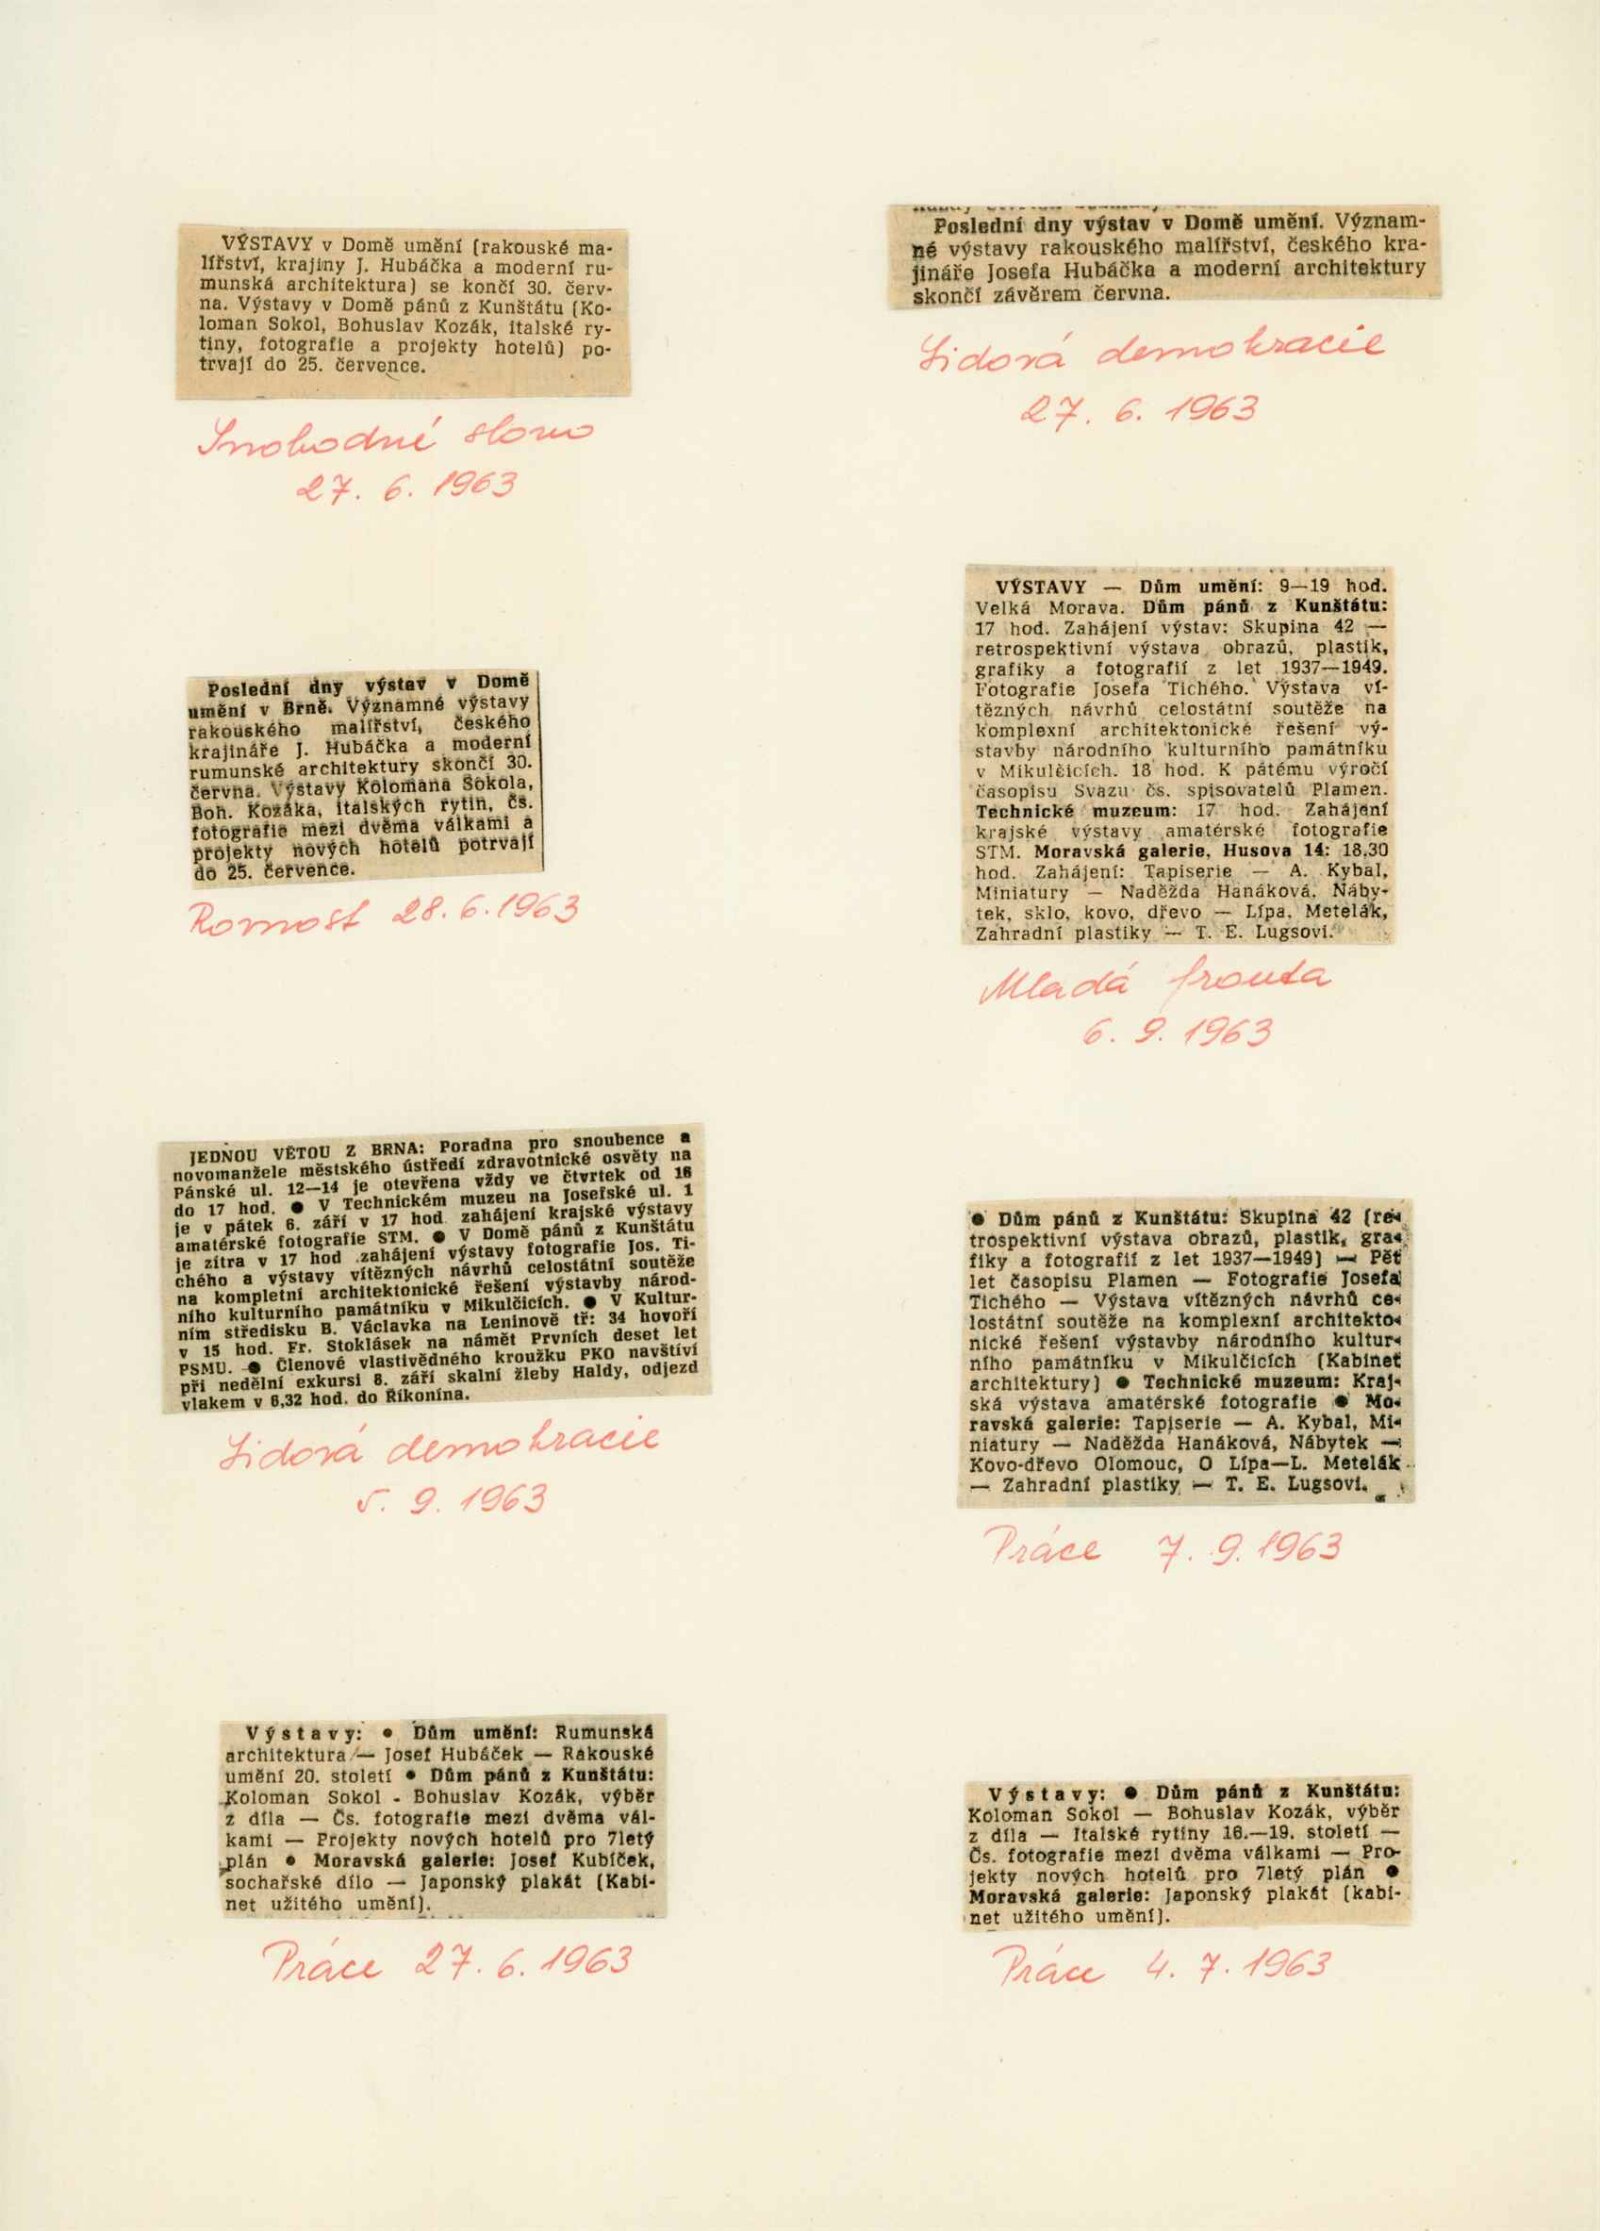 VÝSTAVY v Domě umění (rakouské ma-
lířství, krajiny J. Hubáčka a moderní ru-
munská architektura) se končí 30. červ-
na. Výstavy v Domě pánů z Kunštátu (Ko-
loman Sokol, Bohuslav Kozák, italské ry-
tiny, fotografie a projekty hotelů) po-
trvají do 25. července.
Svobodné slovo
27. 6. 1963
Poslední dny výstav v Domě umění. Význam-
né výstavy rakouského malířství, českého kra-
jináře Josefa Hubáčka a moderní architektury
skončí závěrem června.
Lidová demokracie
27. 6. 1963
Poslední dny výstav v Domě
umění v Brně. Významné výstavy
rakouského malířství, českého
krajináře J. Hubáčka a moderní
rumunské architektury skončí 30.
června. Výstavy Kolomana Sokola,
Boh. Kozáka, italských rytin, čs.
fotografie mezi dvěma válkami a
projekty nových hotelů potrvají
do 25. července.
Rovnost 28. 6. 1963
VÝSTAVY — Dům umění: 9—19 hod.
Velká Morava. Dům pánů z Kunštátu:
17 hod. Zahájení výstav: Skupina 42 —
retrospektivní výstava obrazů, plastik,
grafiky a fotografií z let 1937—1949.
Fotografie Josefa Tichého. Výstava ví-
tězných návrhů celostátní soutěže na
komplexní architektonické řešení vý-
stavby národního kulturního památníku
v Mikulčicích. 18 hod. K pátému výročí
časopisu Svazu čs. spisovatelů Plamen.
Technické muzeum: 17 hod. Zahájení
krajské výstavy amatérské fotografie
STM. Moravská galerie, Husova 14: 18.30
hod. Zahájení: Tapiserie — A. Kybal,
Miniatury — Naděžda Hanáková. Náby-
tek, sklo, kovo, dřevo — Lípa, Metelák,
Zahradní plastiky — T. E. Lugsovi.
Mladá fronta
6. 9. 1963
JEDNOU VĚTOU Z BRNA: Poradna pro snoubence a
novomanžele městského ústředí zdravotnické osvěty na
Pánské ul. 12—14 je otevřena vždy ve čtvrtek od 16
do 17 hod. ● V Technickém muzeu na Josefské ul. 1
je v pátek 6. září v 17 hod. zahájení krajské výstavy
amatérské fotografie STM. ● V Domě pánů z Kunštátu
je zítra v 17 hod. zahájení výstavy fotografie Jos. Ti-
chého a výstavy vítězných návrhů celostátní soutěže
na kompletní architektonické řešení výstavby národ-
ního kulturního památníku v Mikulčicích. ● V Kultur-
ním středisku B. Václavka na Leninově tř: 34 hovoří
v 15 hod. Fr. Stoklásek na námět Prvních deset let
PSMU. ● Členové vlastivědného kroužku PKO navštíví
při nedělní exkursi 8. září skalní žleby Haldy, odjezd
vlakem v 6,32 hod. do Říkonína.
Lidová demokracie
5. 9. 1963
● Dům pánů z Kunštátu: Skupina 42 (re-
trospektivní výstava obrazů, plastik, gra-
fiky a fotografií z let 1937—1949) — Pět
let časopisu Plamen — Fotografie Josefa
Tichého — Výstava vítězných návrhů ce-
lostátní soutěže na komplexní architekto-
nické řešení výstavby národního kultur-
ního památníku v Mikulčicích (Kabinet
architektury) ● Technické muzeum: Kraj-
ská výstava amatérské fotografie ● Mo-
ravská galerie: Tapiserie — A. Kybal, Mi-
niatury — Naděžda Hanáková, Nábytek —
Kovo-dřevo Olomouc, O Lípa—L. Metelák
— Zahradní plastiky — T. E. Lugsovi.
Práce 7. 9. 1963
Výstavy: ● Dům umění: Rumunská
architektura — Josef Hubáček — Rakouské
umění 20. století ● Dům pánů z Kunštátu:
Koloman Sokol - Bohuslav Kozák, výběr
z díla — Čs. fotografie mezi dvěma vál-
kami — Projekty nových hotelů pro 7letý
plán ● Moravská galerie: Josef Kubíček,
sochařské dílo — Japonský plakát (Kabi-
net užitého umění).
Práce 27. 6. 1963
Výstavy: ● Dům pánů z Kunštátu:
Koloman Sokol — Bohuslav Kozák, výběr
z díla — Italské rytiny 16.—19. století —
Čs. fotografie mezi dvěma válkami — Pro-
jekty nových hotelů pro 7letý plán ●
Moravská galerie: Japonský plakát (kabi-
net užitého umění).
Práce 4. 7. 1963